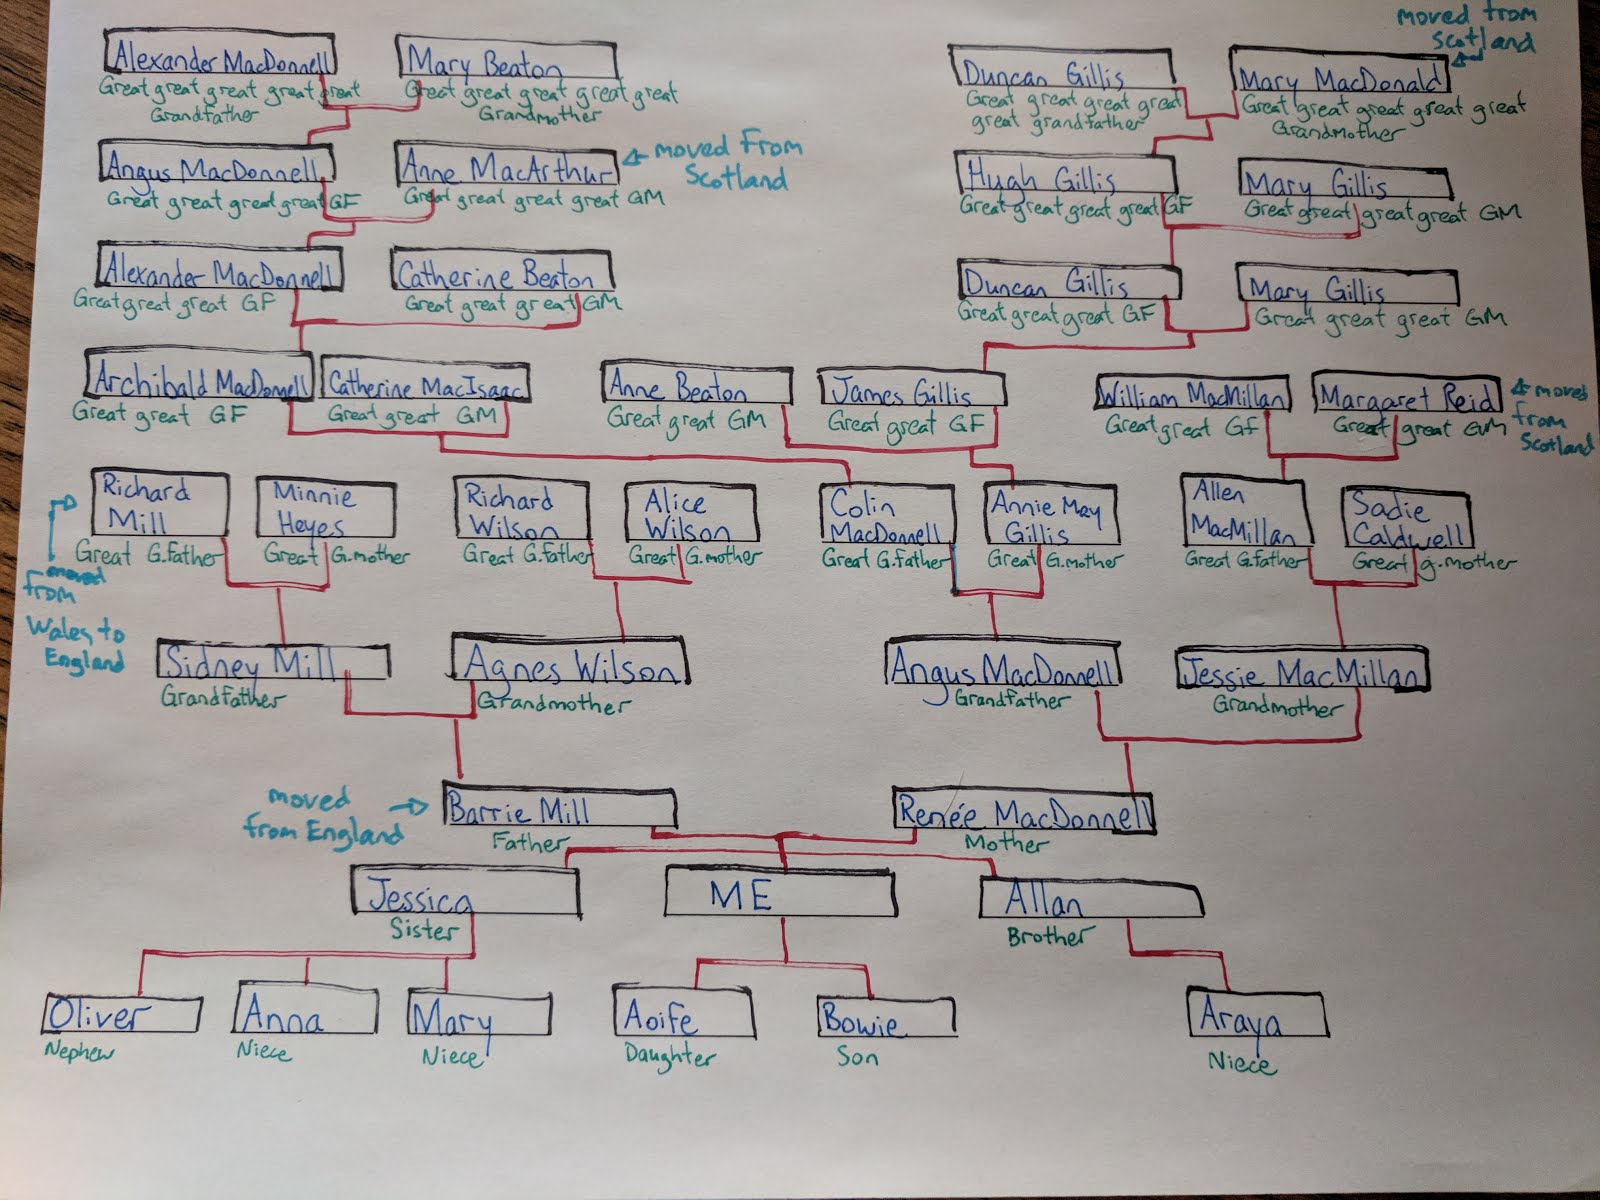 moved from
Scotland
Alexander MacDonnell
Great great great great great
Grandfather
Mary Beaton
Great great great great great
Grandmother
Duncan Gillis
Great great great great
great grandfather
Mary MacDonald
Great great great great great
Grandmother
Angus MacDonnell
Great great great great GF
Anne MacArthur
Great great great great GM
moved From
Scotland
Hugh Gillis
Great great great great GF
Mary Gillis
Great great great great GM
Alexander MacDonnell
Great great great GF
Catherine Beaton
Great great great GM
Duncan Gillis
Great great great GF
Mary Gillis
Great great great GM
Archibald MacDonnell
Great great GF
Catherine MacIsaac
Great great GM
Anne Beaton
Great great GM
James Gillis
Great great GF
William MacMillan
Great great GF
Margaret Reid
Great great GM
moved
from
Scotland
Richard
Mill
Great G.father
Minnie
Heyes
Great G.mother
Richard
Wilson
Great G.father
Alice
Wilson
Great G.mother
Colin
MacDonnell
Great G.father
Annie May
Gillis
Great G.mother
Allen
MacMillan
Great G.father
Sadie
Caldwell
Great g.mother
moved
from
Wales to
England
Sidney Mill
Grandfather
Agnes Wilson
Grandmother
Angus MacDonnell
Grandfather
Jessie MacMillan
Grandmother
moved
from England
Barrie Mill
Father
Renée MacDonnell
Mother
Jessica
Sister
ME
Allan
Brother
Oliver
Nephew
Anna
Niece
Mary
Niece
Aoife
Daughter
Bowie
Son
Araya
Niece